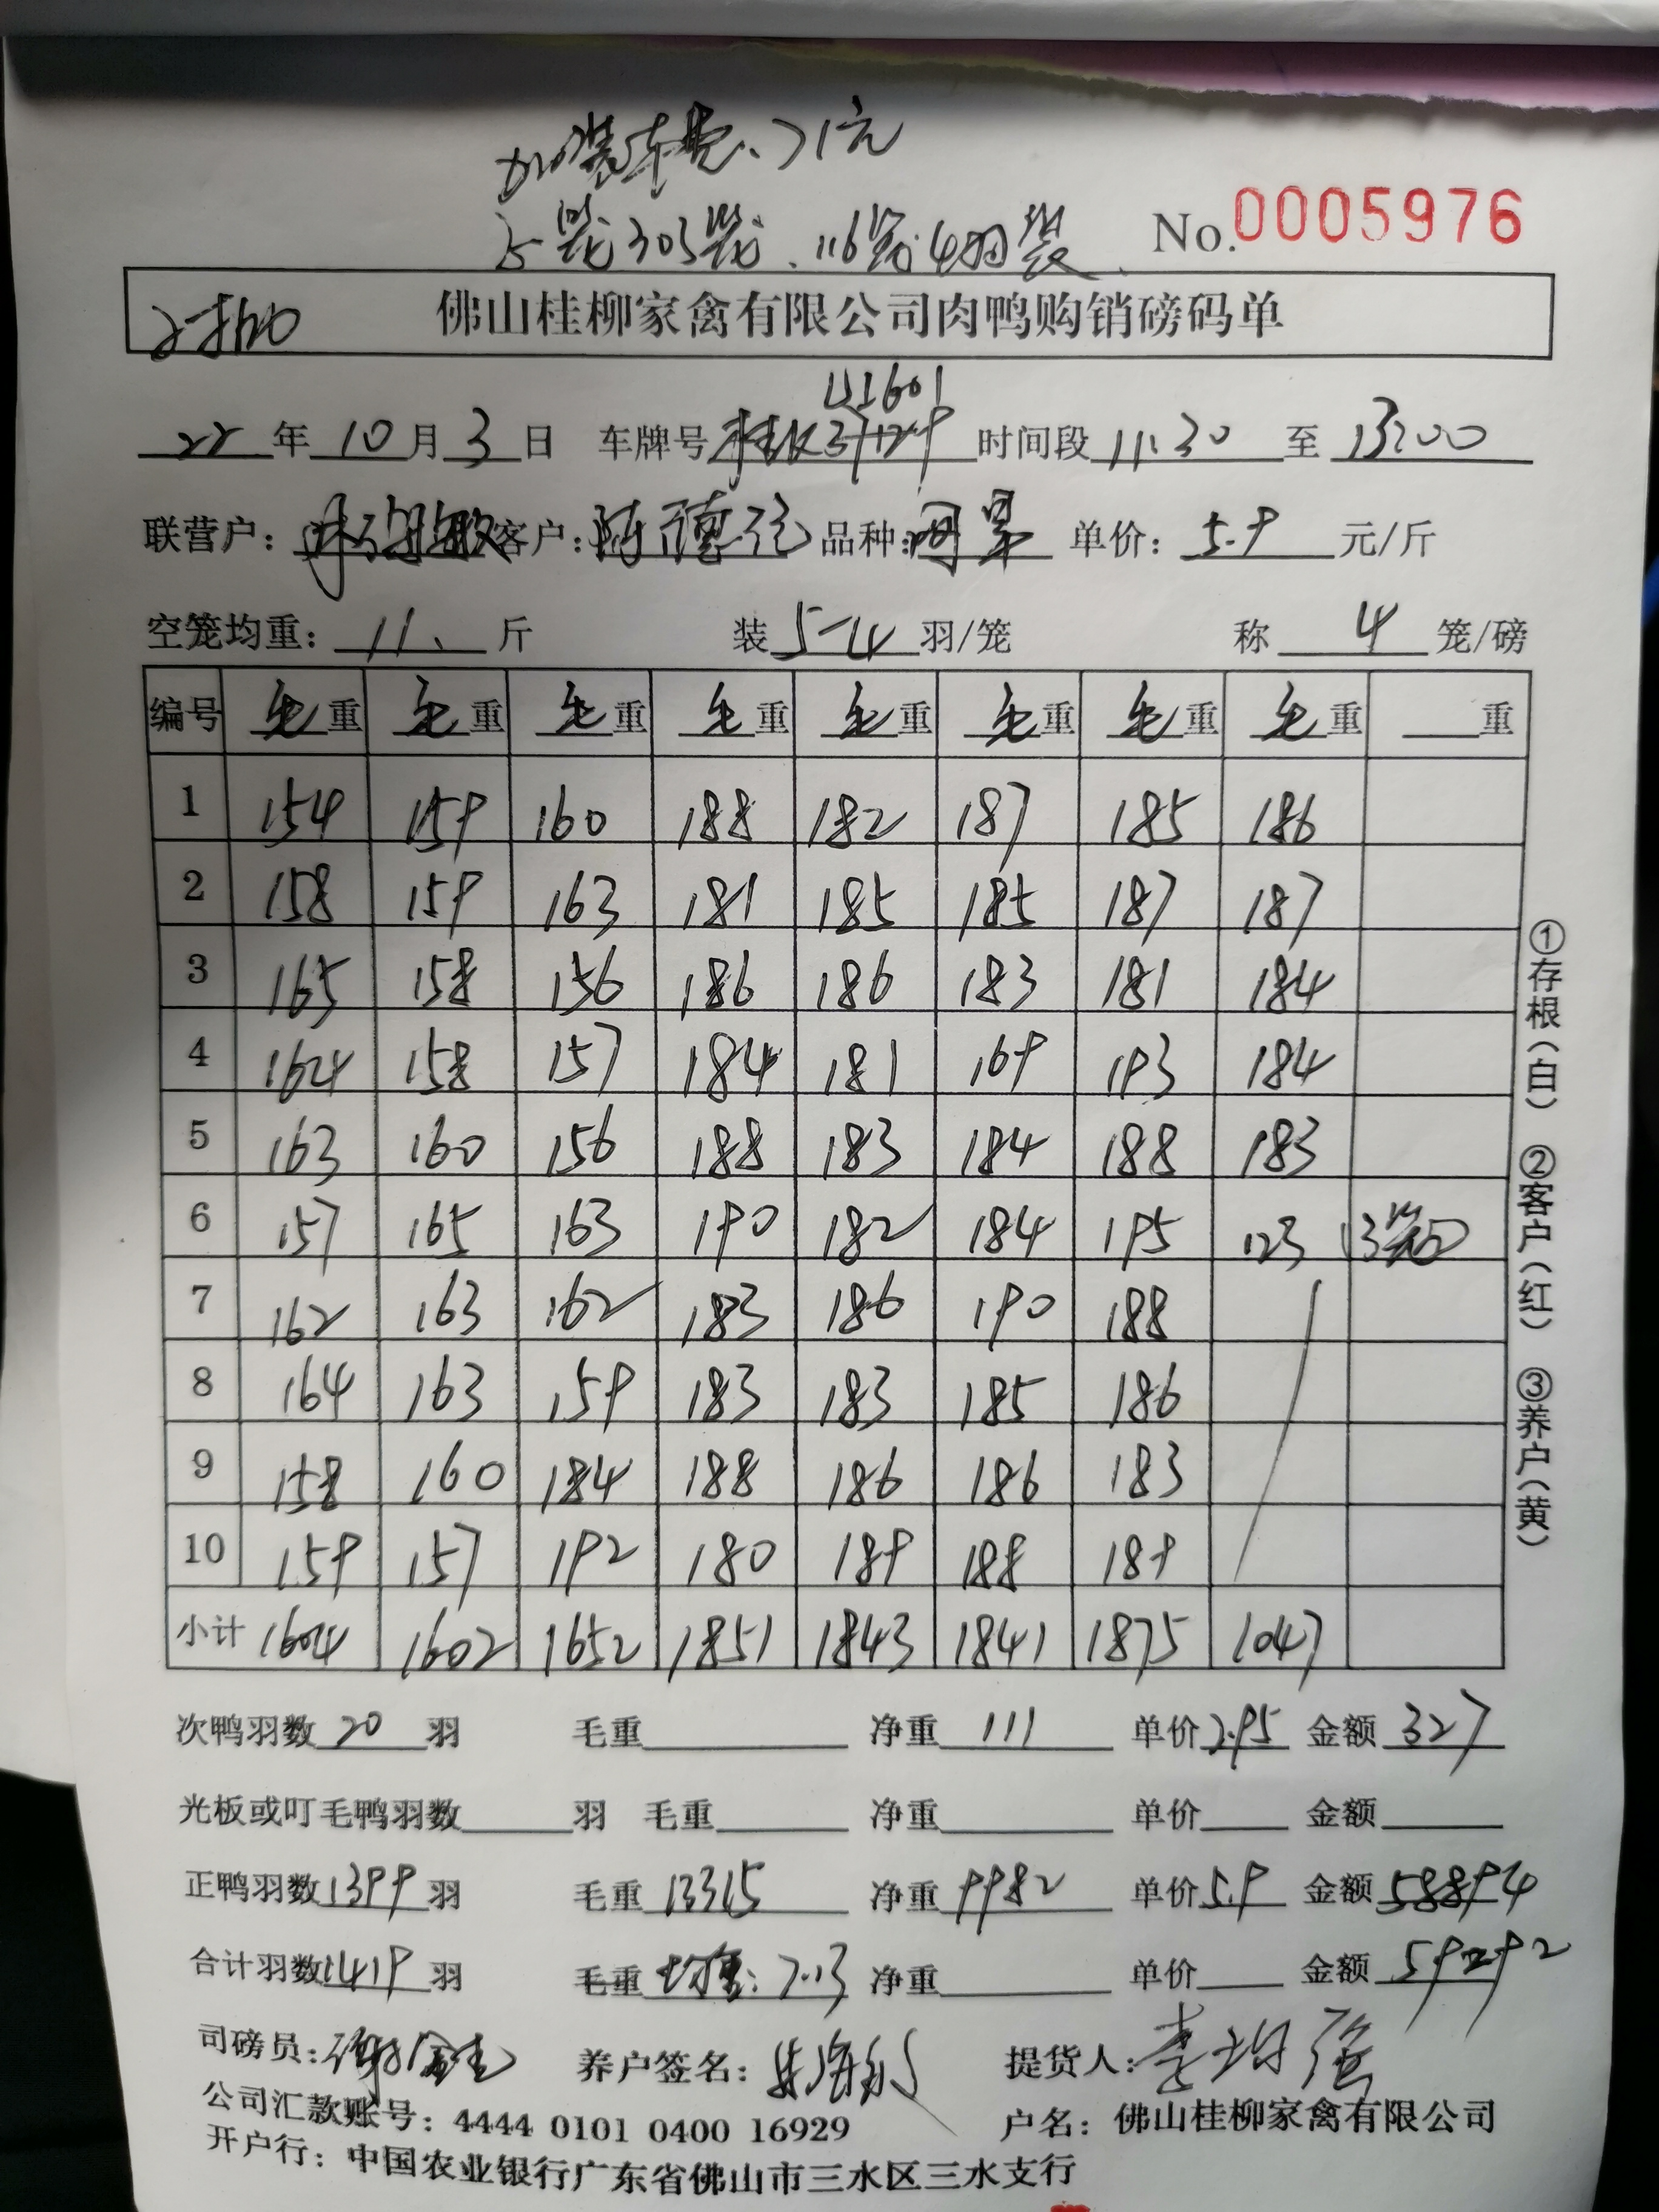 加装车费、71元
5笼303笼、116笼4羽装
No.0005976
佛山桂柳家禽有限公司肉鸭购销磅码单
U1601
22年10月3日 车牌号 时间段11:30至13:00
联营户: 客户:陈德 品种: 单价:5.9元/斤
空笼均重:11.斤 装5-4羽/笼 称4笼/磅
编号 毛重 毛重 毛重 毛重 毛重 毛重 毛重 毛重 重
1 154 159 160 188 182 187 185 186
2 158 159 163 181 185 185 187 187
3 165 158 156 186 186 183 181 184
4 164 158 157 184 181 169 193 184
5 163 160 156 188 183 184 188 183
6 157 165 163 190 182 184 195 123 13笼
7 162 163 162 183 186 190 188
8 164 163 159 183 183 185 186
9 158 160 184 188 186 186 183
10 159 157 192 180 189 188 189
小计 1604 1602 1652 1851 1843 1841 1875 1047
①存根(白) ②客户(红) ③养户(黄)
次鸭羽数20羽 毛重 净重111 单价2.95 金额327
光板或叮毛鸭羽数 羽 毛重 净重 单价 金额
正鸭羽数1399羽 毛重13315 净重9982 单价5.9 金额58894
合计羽数1419羽 毛重 均重:7.13 净重 单价 金额59292
司磅员: 养户签名: 提货人:李均强
公司汇款账号:4444 0101 0400 16929 户名:佛山桂柳家禽有限公司
开户行:中国农业银行广东省佛山市三水区三水支行